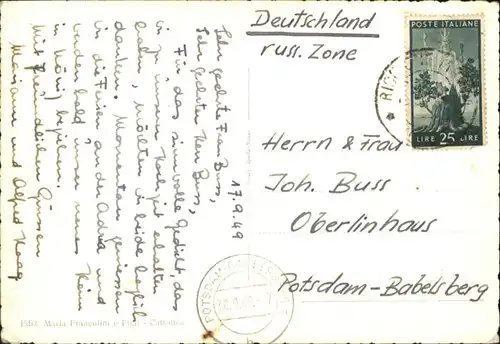 17.9.49
Sehr geehrte Frau Buss,
Sehr geehrter Herr Buss,
Für das sinnvolle Gedicht, das
wir zu unserer Hochzeit erhalten
haben, möchten wir beide herzlich
danken. Momentan geniessen
wir die Ferien an der Adria und
werden bald unser neues Heim
in beziehen.
Mit freundlichen Grüssen
Mariann und Alfred
Deutschland
russ. Zone
Herrn & Frau
Joh. Buss
Oberlinhaus
Potsdam-Babelsberg
POSTE ITALIANE
LIRE 25 LIRE
POTSDAM-BABELSBERG
Ediz. Maria e Figli - Cattolica